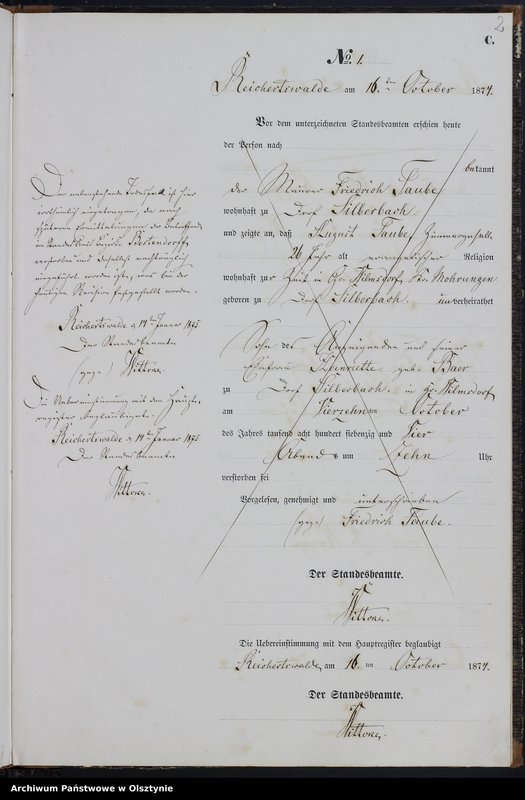 2
C.
No. 1.
Reichertswalde am 16.ten October 1874.
Vor dem unterzeichneten Standesbeamten erschien heute
der Person nach
bekannt
der Maurer Friedrich Taube
wohnhaft zu Dorf Silberbach
und zeigte an, daß August Taube, Zimmergeselle
26 Jahr alt evangelischer Religion
wohnhaft zur Zeit in Gr. Wilmsdorf, Kr. Mohrungen
geboren zu Dorf Silberbach unverheirathet
Sohn des und seiner
Ehefrau Henriette geb. Baer
zu Dorf Silberbach in Gr. Wilmsdorf
am Vierzehnten October
des Jahres tausend acht hundert siebenzig und Vier
Abends um Zehn Uhr
verstorben sei
Vorgelesen, genehmigt und unterschrieben
(gez) Friedrich Taube.
Der Standesbeamte.
Wittone.
Die Uebereinstimmung mit dem Hauptregister beglaubigt
Reichertswalde, am 16.ten October 1874.
Der Standesbeamte.
Wittone.
Der Todesfall ist hier
eingetragen, da nach
Ermittelungen der
im Standesamts Bezirk
verstorben und deshalb
worden ist, was bei der
Revision festgestellt worden.
Reichertswalde d. 14ten Januar 1875.
Der Standesbeamte
(gez) Wittone.
Die Uebereinstimmung mit dem Haupt-
register beglaubigt.
Reichertswalde d. 14ten Januar 1875.
Der Standesbeamte
Wittone.
Archiwum Państwowe w Olsztynie